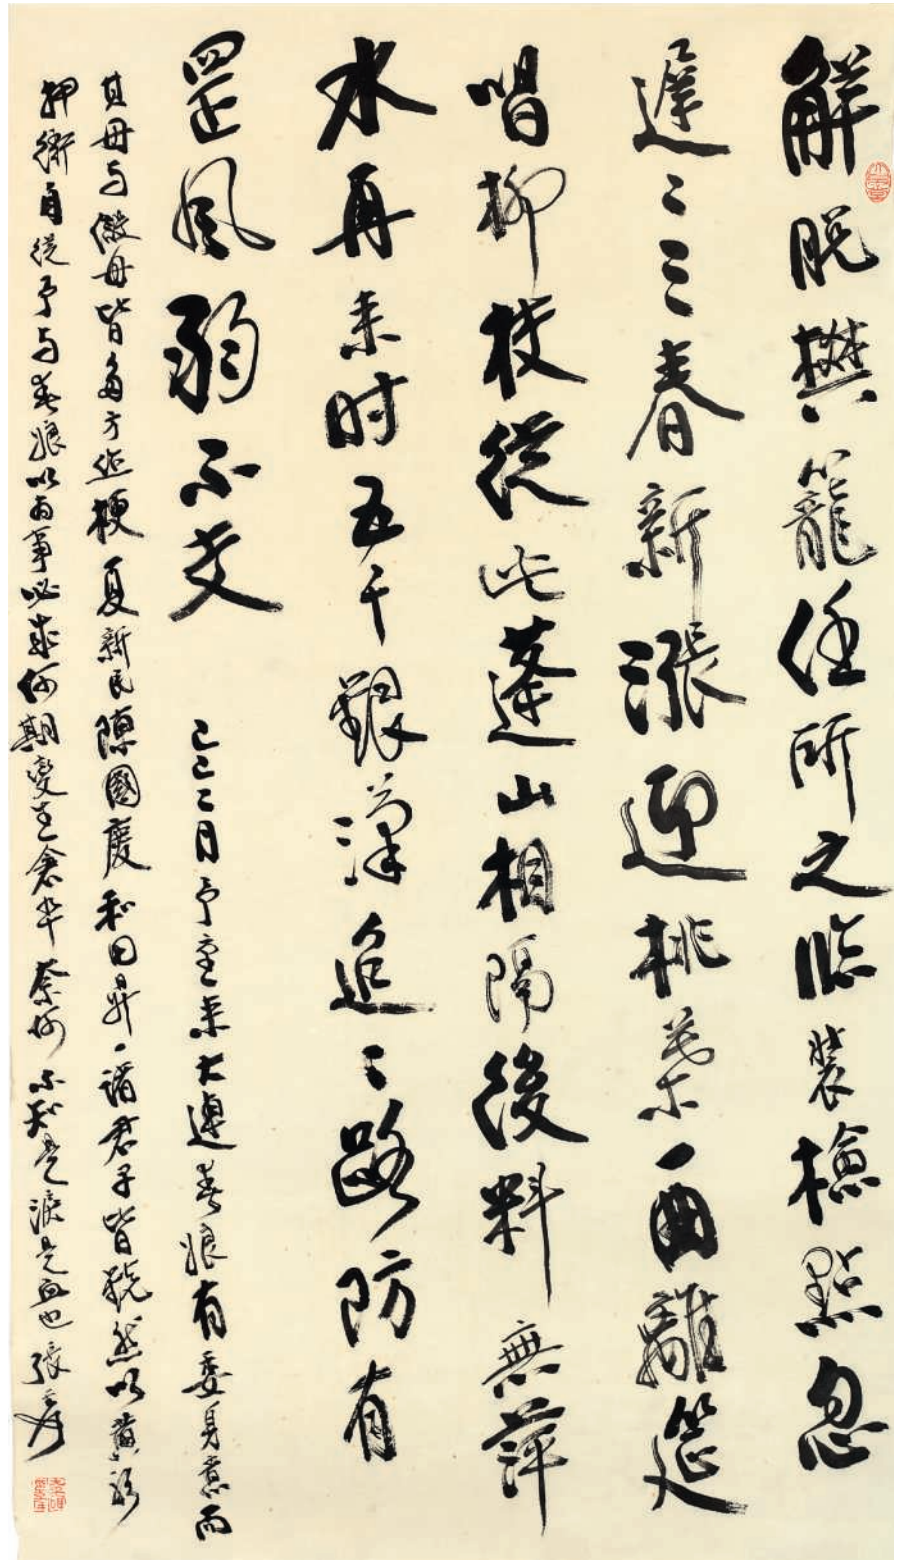 解脱樊籠任所之臨裝檢點忽
遲〻三春新漲迎桃葉一曲離筵
唱柳枝從此蓬山相隔後料無萍
水再来时五千銀漢迢〻路防有
罡風弱不支
己巳二月予重来大連春娘有委身意而
其母与假母皆多方作梗夏新民陳國慶和田昇一諸君子皆毅然以黄衫
押衙自從予与春娘以为事必成何期變生倉卒奈何不知是淚是血也 張